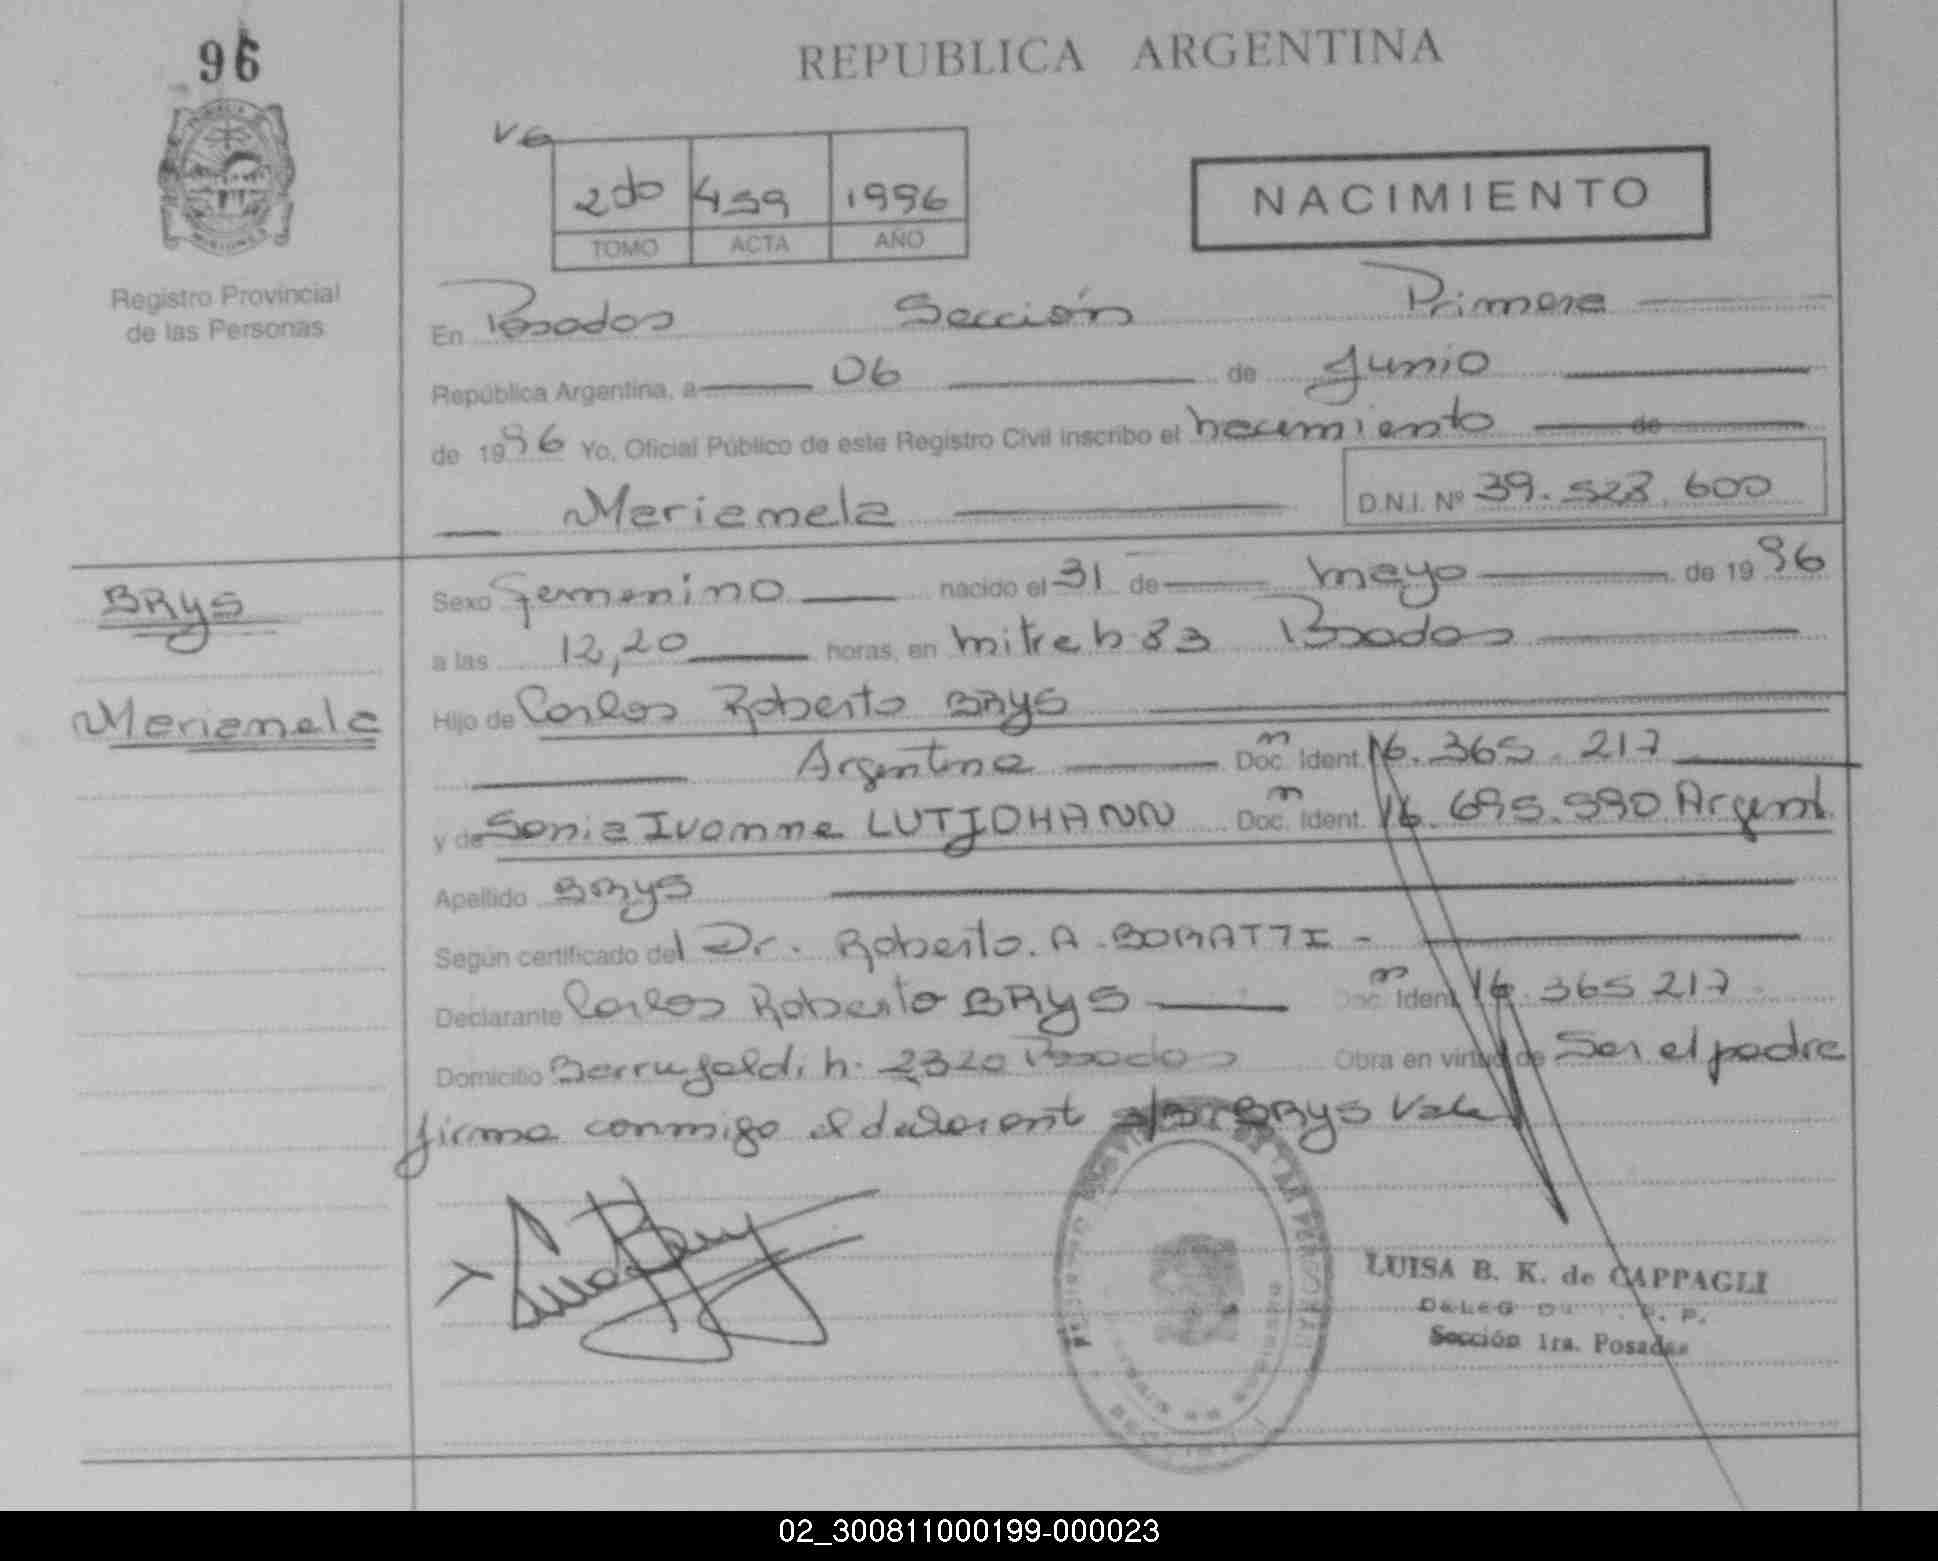 96
REPUBLICA ARGENTINA
2do 459 1996
TOMO ACTA AÑO
NACIMIENTO
Registro Provincial
de las Personas
En Posadas Sección Primera
República Argentina, a 06 de Junio
de 1996 Yo, Oficial Público de este Registro Civil inscribo el nacimiento de
Mariamela D.N.I. Nº 39.528.600
BRYS
Mariamela
Sexo Femenino nacido el 31 de mayo de 1996
a las 12,20 horas, en mitre h 83 Posadas
Hijo de Carlos Roberto BRYS
Argentina Doc. Ident. 16.365.217
y de Sonia Ivonne LUTJOHANN Doc. Ident. 16.695.590 Argent.
Apellido BRYS
Según certificado del Dr. Roberto. A. BORATTI -
Declarante Carlos Roberto BRYS Doc. Ident. 16.365.217
Domicilio h. 2320 Posadas Obra en virtud de Ser el padre
firma conmigo el declarant BRYS Vale
LUISA B. K. de CAPPAGLI
Sección 1ra. Posadas
02_300811000199-000023